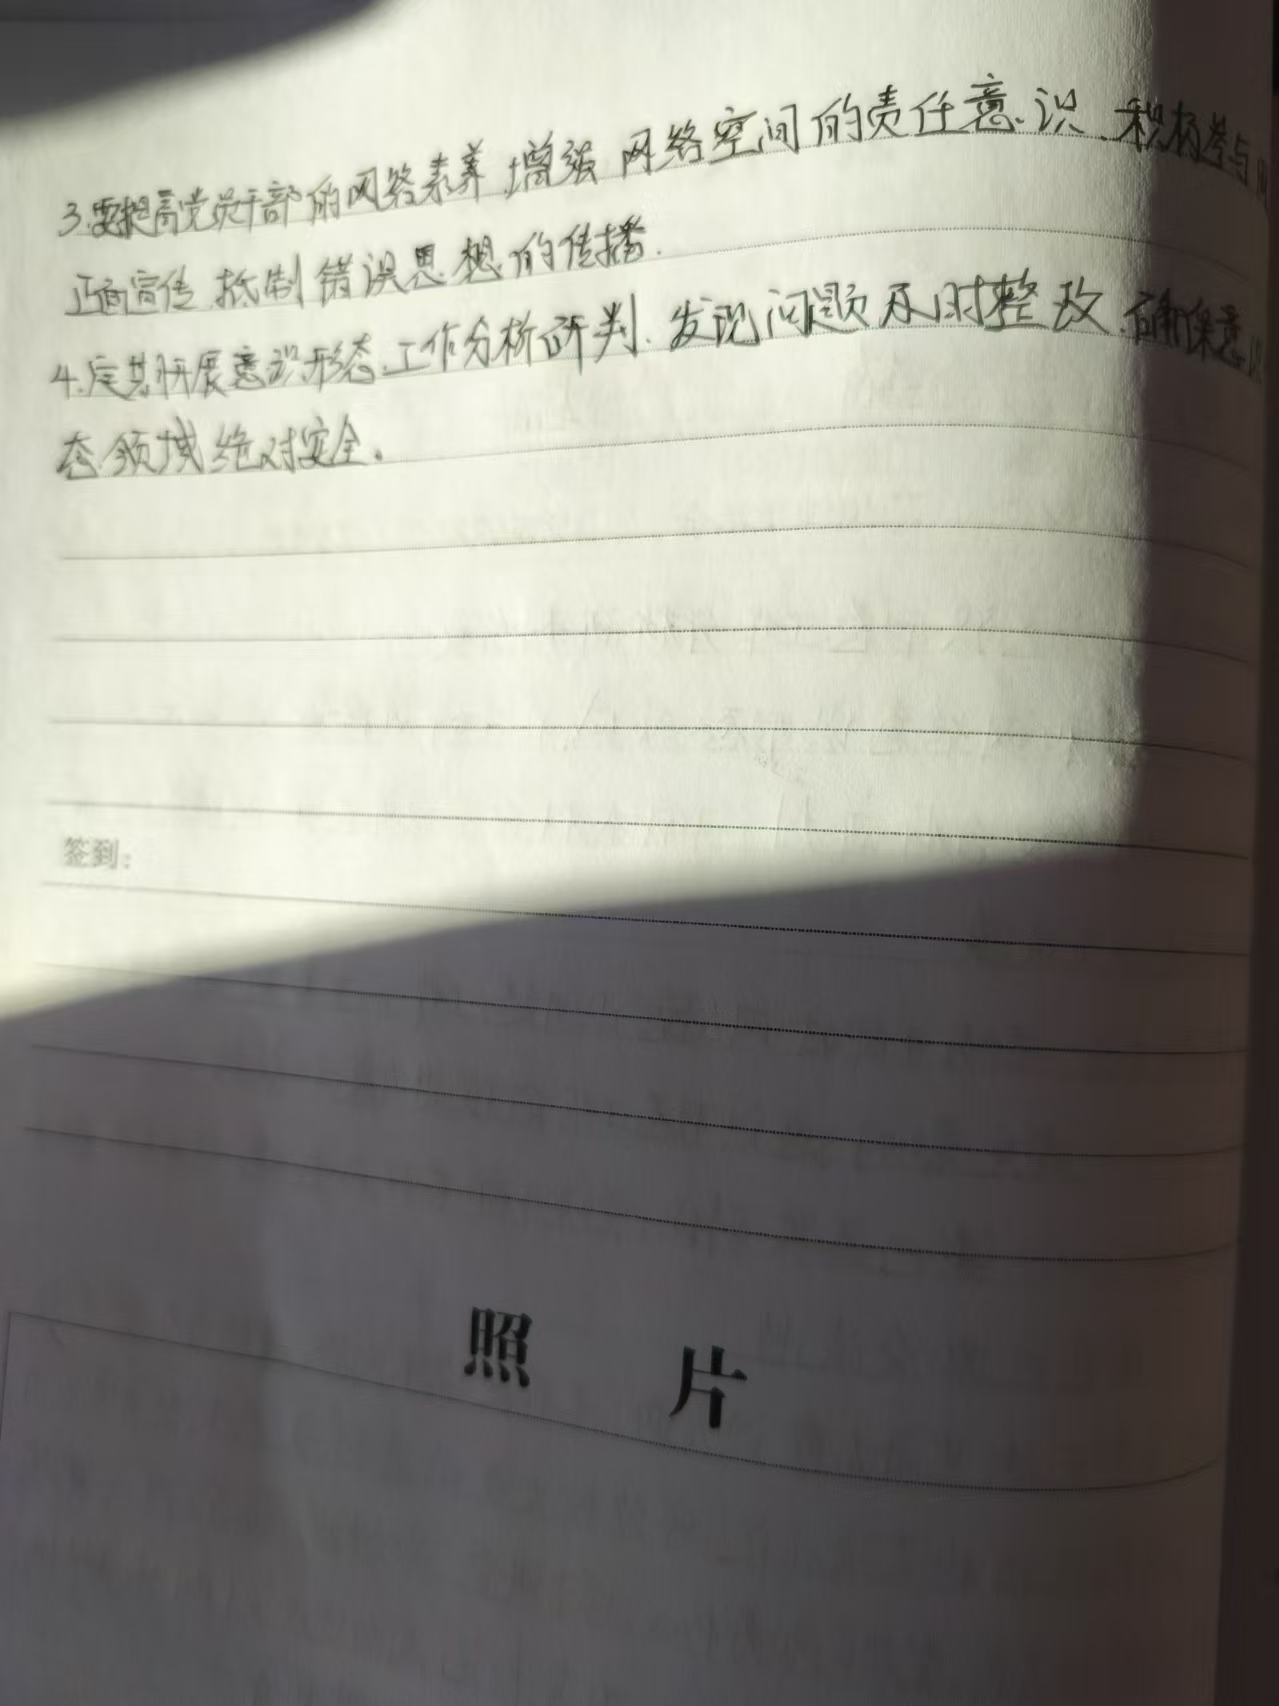 3.要提高党员干部的网络素养,增强网络空间的责任意识,积极参与网
正面宣传,抵制错误思想的传播.
4.定期开展意识形态工作分析研判,发现问题及时整改,确保意识
态领域绝对安全。
签到:
照 片